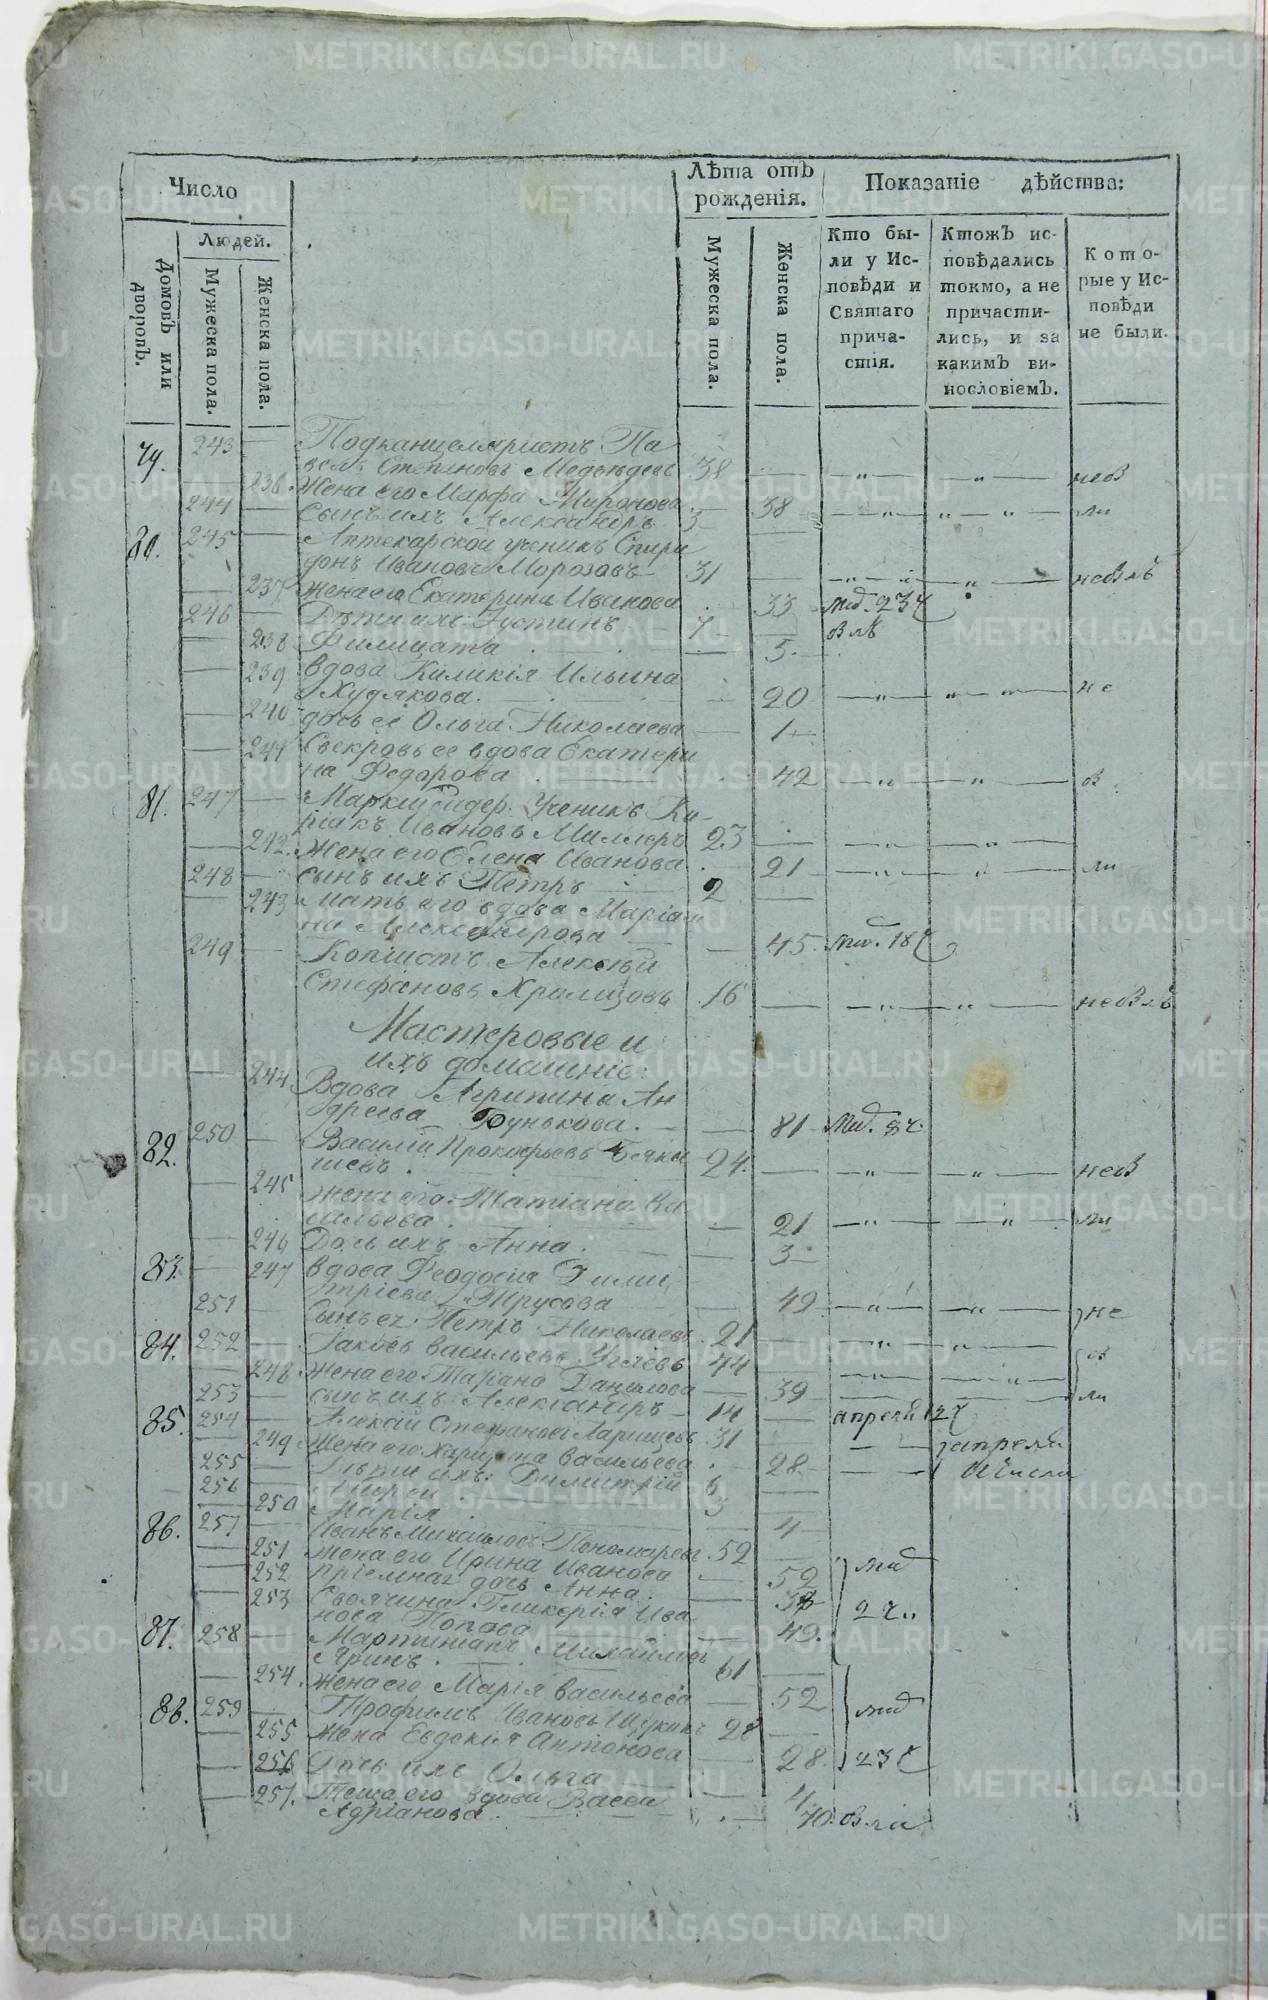 Число
Лѣта отъ рожденія.
Показаніе дѣйства:
Людей.
Домовъ или дворовъ.
Мужеска пола.
Женска пола.
Мужеска пола.
Женска пола.
Кто были у Исповѣди и Святаго причастія.
Ктожъ исповѣдались токмо, а не причастились, и за какимъ винословіемъ.
Которые у Исповѣди не были.
79. 243 Подканцеляристъ Па
велъ Степановъ Медвѣдевъ 38 — „ — „ — неб
236 Жена его Марфа Миронова 38 — „ — „ — „ — ли
244 Сынъ ихъ Александръ 3
80. 245 Аптекарской ученикъ Спири
донъ Ивановъ Морозовъ 31 — „ — „ — небылъ
237 Жена его Екатерина Иванова 33
246 Дѣти их: Іустинъ 7
238 Филицата 5
239 вдова Киликія Ильина
Худякова. 20 — „ — „ — не
240 дочь ее Ольга Николаева 1
241 Свекровь ее вдова Екатери
на Федорова 42 — „ — „ —
81. 247 Маркшейдер. Ученикъ Ки-
ріакъ Ивановъ Миллеръ 23 — „ — „ —
242. Жена его Елена Иванова 21 — „ — „ — ли
248 сынъ ихъ Петръ 2
243 Мать его вдова Маріам
на Александрова 45.
249 Копіистъ Алексѣй
Стефановъ Хромцовъ 16 — „ — „ — небылъ
Мастеровые и
ихъ домашніе:
244 Вдова Агрипина Ан
дреева Бунькова. 81
82. 250 Василій Прокофьевъ Бякы
шевъ. 24. — „ — „ — неб
245 жена его Татіана Ва
сильева. 21 — „ — „ — ли
246 Дочь ихъ Анна. 3
83. 247 вдова Феодосія Дими
тріева Трусова 49 — „ — „ — не
251 Сынъ ея Петръ Николаевъ 21 — „ — „ —
84. 252 Іаковъ Васильевъ 44
248 жена его Данилова 39 — ли
253 сынъ ихъ Александръ 14 апреля
85. 254 Алексій Стефановъ Ларищевъ 31 апреля
249 Жена его Харитина Васильева 28 числа
255 Дѣти ихъ: Димитрій 6
256 Андрей 3
250 Марія 4
86. 257 Иванъ Михайловъ Пономаревъ 52
251 жена его Ирина Иванова 52
252 Пріемная дочь Анна.
253 Своячина Гликерія Ива
нова Попова 49.
87. 258 Мартиніанъ Михайловъ
Яринъ. 61
254. жена его Марія Васильева 52
88. 259 Трофимъ Ивановъ Щукинъ 28
255 жена Евдокія Антонова 28
256 Дочь ихъ Ольга 4
257. Теща его вдова Васса
Адріанова 70.
METRIKI.GASO-URAL.RU